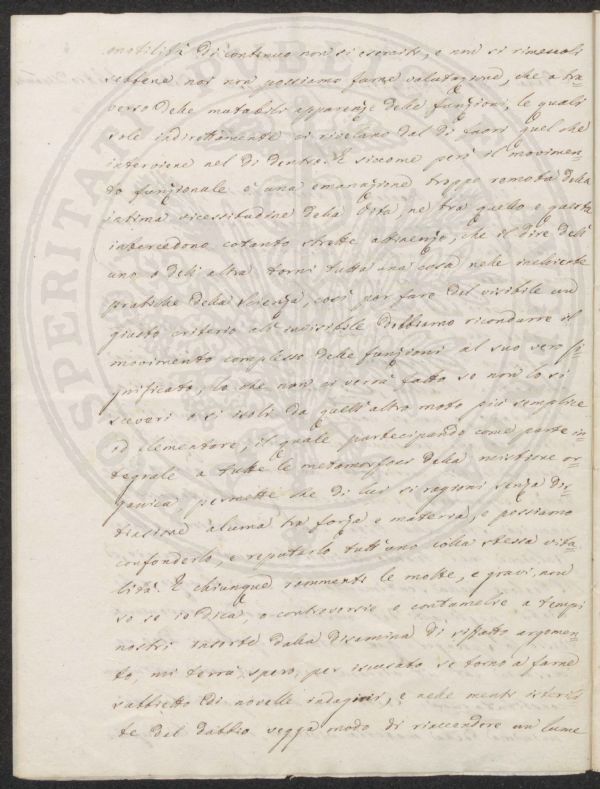 motilità di continuo non si eserciti, e non si rimescoli
sebbene noi non possiamo farne valutazione, che a tra-
verso delle mutabili apparenze delle funzioni, le quali
sole indirettamente ci rivelano dal di fuori quel che
interviene nel di dentro. E siccome però il movimen-
to funzionale è una emanazione troppo remota della
intima vicissitudine della vita, nè tra quello e questa
intercedono cotanto strette attinenze, che il dire dell'
uno o dell'altra torni tutta una cosa nelle inchieste
pratiche della Scienza, così per fare del visibile un
giusto criterio all'invisibile dobbiamo ricondurre il
movimento complesso delle funzioni al suo vero si-
gnificato, lo che non ci verrà fatto se non lo si
sceveri e si isoli da quell'altro moto più semplice
ed elementare, il quale partecipando come parte in-
tegrale a tutte le metamorfosi della mistione or-
ganica, permette che di lui si ragioni senza dis-
tinzione alcuna tra forza e materia, e possiamo
confonderlo, e reputarlo tutt'uno colla stessa vita-
lità. E chiunque rammenti le molte, e gravi, non
so se io dica, o controversie o contumelie a tempi
nostri insorte dalla disamina di siffatto argomen-
to, mi terrà, spero, per iscusato se torno a farne
subbietto di novelle indagini, e nelle menti
te del dubbio vegga modo di riaccendere un lume